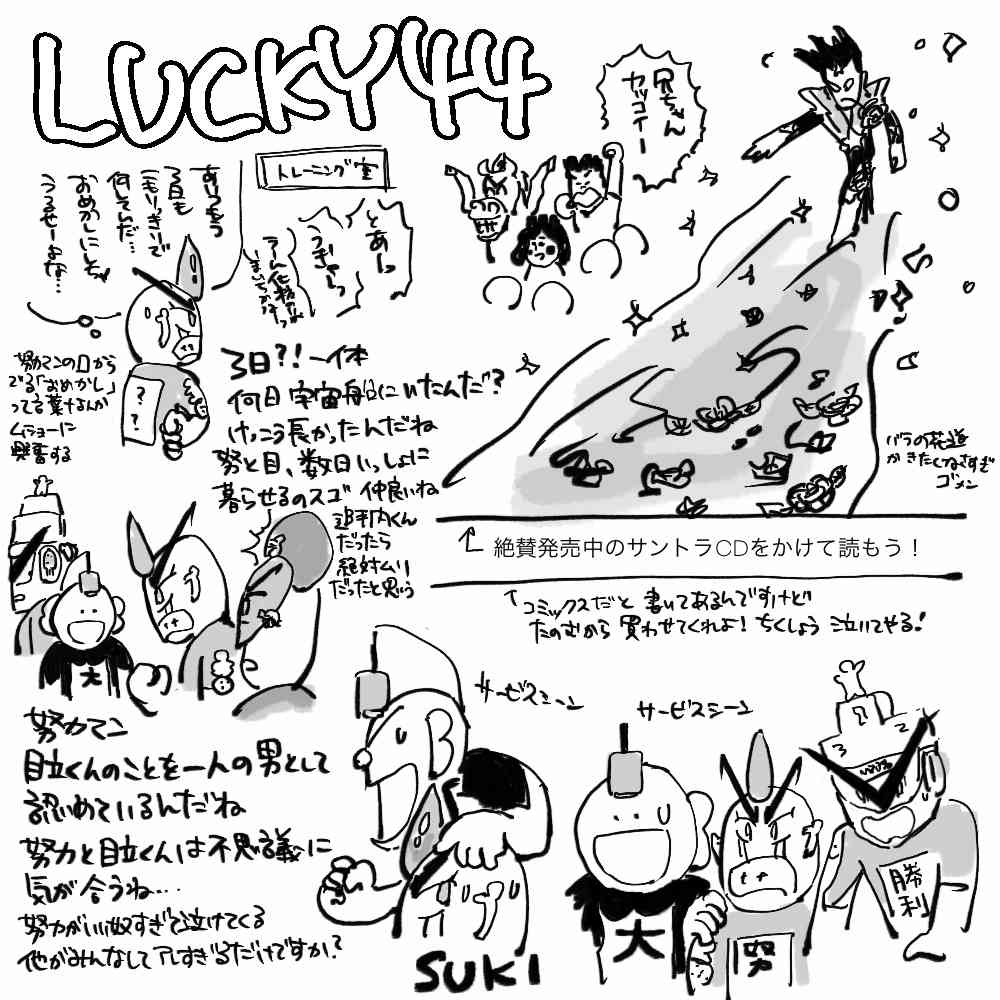 LUCKY44
トレーニング室
あいつもう
3日も
こもりっきりで
何してんだ…
おめかしにしちゃ
うるせーよな…
とあーっ
うぎゃーっ
兄ちゃん
カッコイー
努力マンの口から
でる「おめかし」
って言葉なんか
ムショーに
興奮する
?
?
3日?!一体
何日宇宙船にいたんだ?
けっこう長かったんだね
努と目、数日いっしょに
暮らせるのスゴ 仲良いね
追手内くん
だったら
絶対ムリ
だったと思う
バラの花道
かきたくなさすぎ
ゴメン
絶賛発売中のサントラCDをかけて読もう!
↑コミックスだと 書いてあるんですけど
たのむから 買わせてくれよ!ちくしょう 泣いてやる!
大
努力マン
目立くんのことを一人の男として
認めているんだね
努力と目立くんは不思議に
気が合うね…
努力がいい奴すぎて泣けてくる
他がみんなしてアレすぎるだけですか?
サービスシーン
SUKI
サービスシーン
1
3 2
大
努
勝利